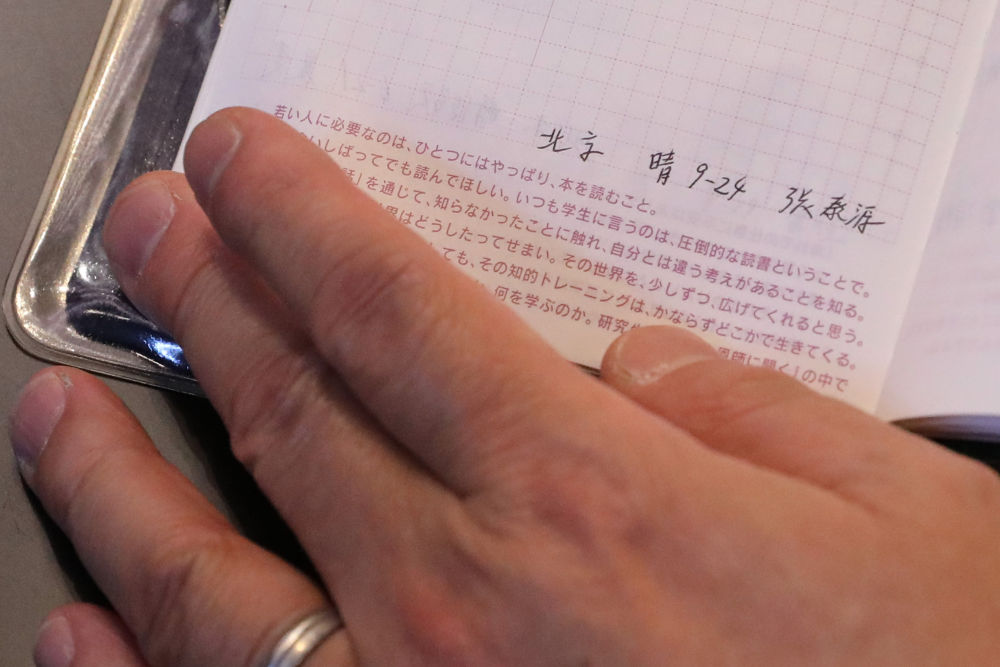 北京 晴 9-24 张泰源
若い人に必要なのは、ひとつにはやっぱり、本を読むこと。
いしばってでも読んでほしい。いつも学生に言うのは、圧倒的な読書ということで。
話」を通じて、知らなかったことに触れ、自分とは違う考えがあることを知る。
界はどうしたってせまい。その世界を、少しずつ、広げてくれると思う。
ても、その知的トレーニングは、かならずどこかで生きてくる。
何を学ぶのか。研究
恩師に聞く」の中で